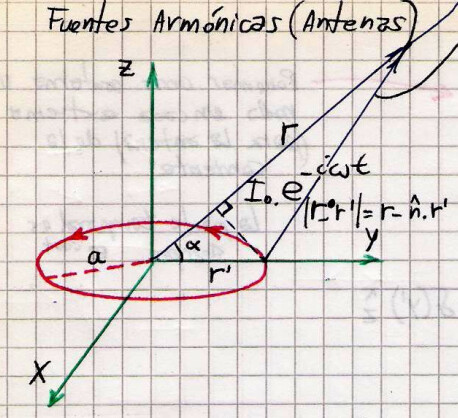 Fuentes Armónicas (Antenas)
z
r
I₀.e^-iωt
|r-r'|=r-n̂.r'
α
y
a
r'
x